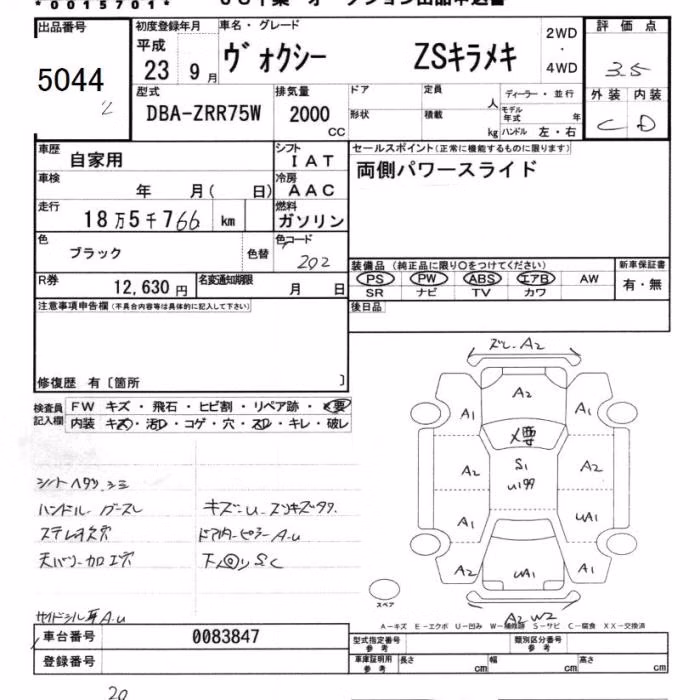 *0015701*
出品番号
5044
初度登録年月
平成
23 9月
車名・グレード
ヴォクシー ZSキラメキ
2WD
・
4WD
評価点
3.5
外装 内装
C D
型式
DBA-ZRR75W
排気量
2000
CC
ドア
形状
定員
人
積載
kg
ディーラー・並行
モデル年式 年
ハンドル 左・右
車歴
自家用
シフト
IAT
セールスポイント(正常に機能するものに限ります)
両側パワースライド
車検
年 月( 日)
冷房
AAC
走行
18万5千766 km
燃料
ガソリン
色
ブラック
色替
色コード
202
装備品 (純正品に限り〇をつけてください)
PS PW ABS エアB AW
SR ナビ TV カワ
新車保証書
有・無
R券
12,630円
名変通知期限
月 日
後日品
注意事項申告欄(不具合内容等は具体的に記入して下さい)
修復歴 有〔箇所 〕
検査員記入欄
FW キズ・飛石・ヒビ割・リペア跡・要
内装 キズ・汚・コゲ・穴・スレ・キレ・破レ
ズレ.A2
A2
A1 A1
メ要
A2 S1 A2
U199
A1 UA1
A2 UA1 A1
A2 W2
スペア
シートヘタリ.シミ
ハンドル
キズ・U
A.U
A.U
A－キズ E－エクボ U－凹み W－補修跡 S－サビ C－腐食 XX－交換済
車台番号
0083847
登録番号
型式指定番号
参考
類別区分番号
参考
車庫証明用
参考
長さ cm
幅 cm
高さ cm
20